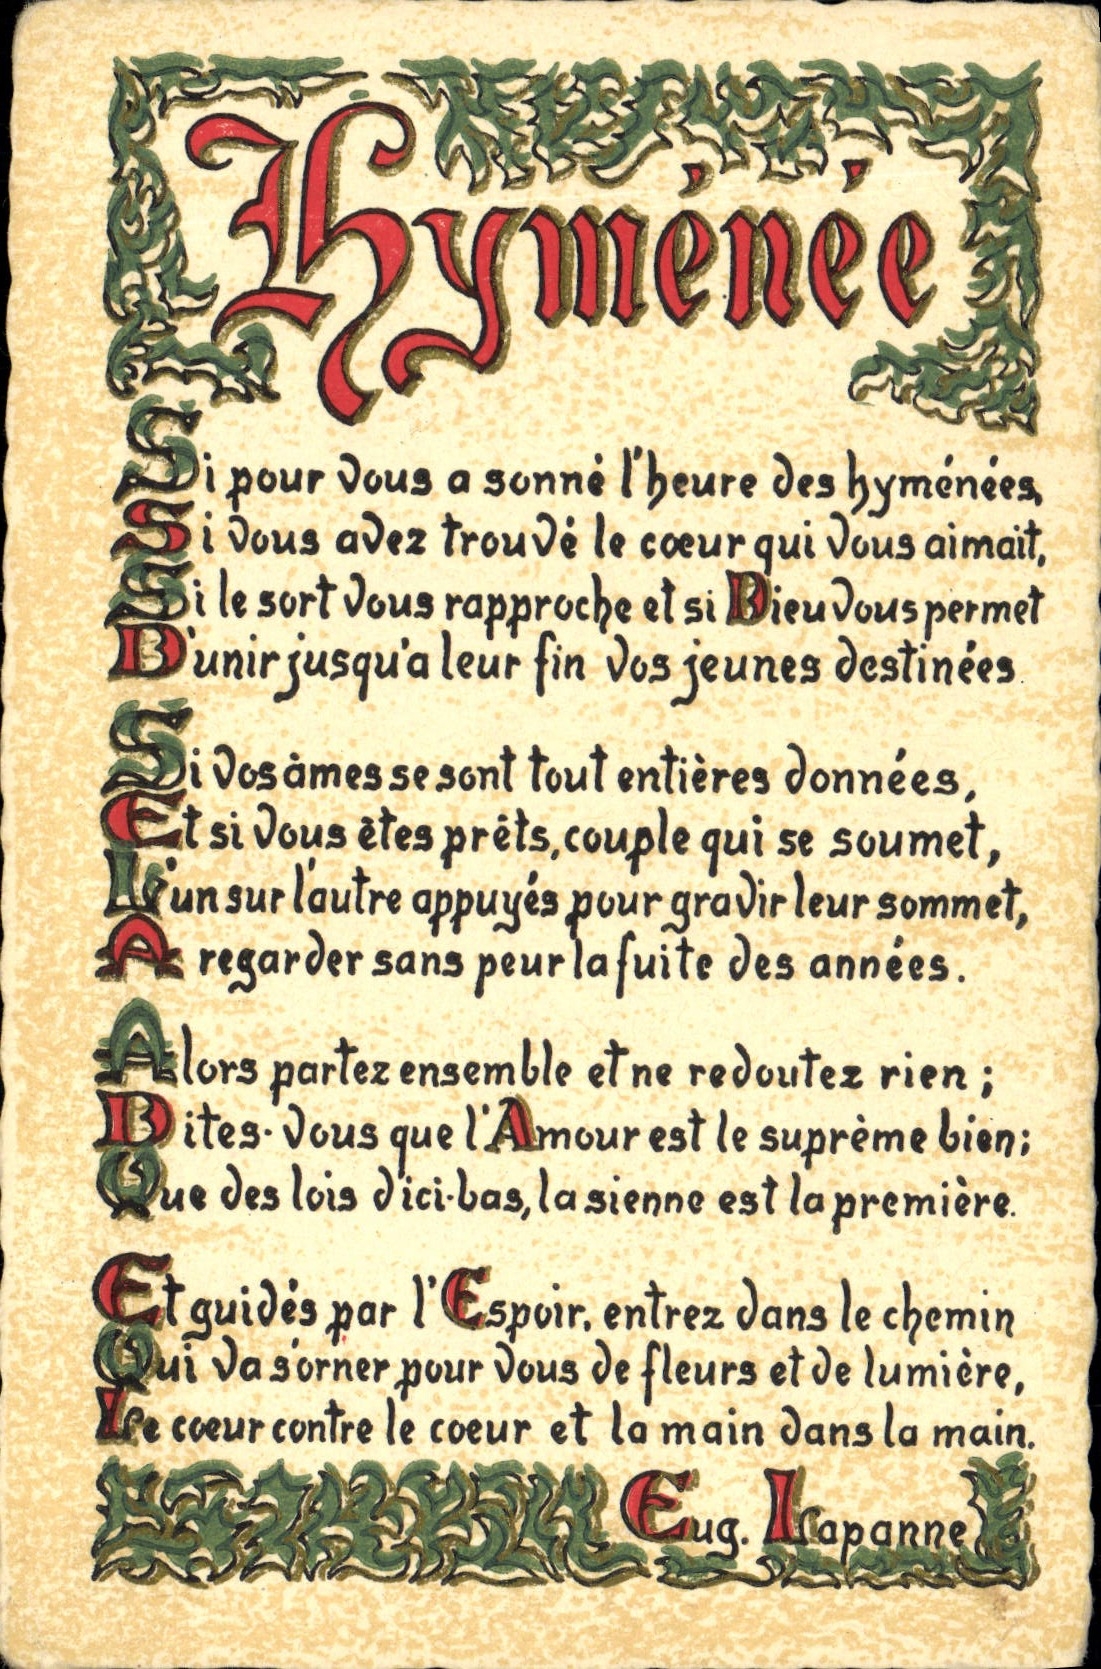 Hyménée
Si pour vous a sonné l'heure des hyménées,
Si vous avez trouvé le cœur qui vous aimait,
Si le sort vous rapproche et si Dieu vous permet
D'unir jusqu'a leur fin vos jeunes destinées.
Si vos âmes se sont tout entières données,
Et si vous êtes prêts, couple qui se soumet,
L'un sur l'autre appuyés pour gravir leur sommet,
A regarder sans peur la fuite des années.
Alors partez ensemble et ne redoutez rien ;
Dites-vous que l'Amour est le suprème bien;
Que des lois d'ici-bas, la sienne est la première.
Et guidés par l'Espoir, entrez dans le chemin
Qui va s'orner pour vous de fleurs et de lumière,
Le cœur contre le cœur et la main dans la main.
Eug. Lapanne